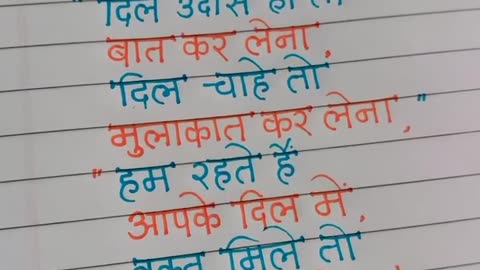 "दिल उदास हो तो
बात कर लेना,
दिल चाहे तो
मुलाकात कर लेना,"
"हम रहते हैं
आपके दिल में,
वक्त मिले तो